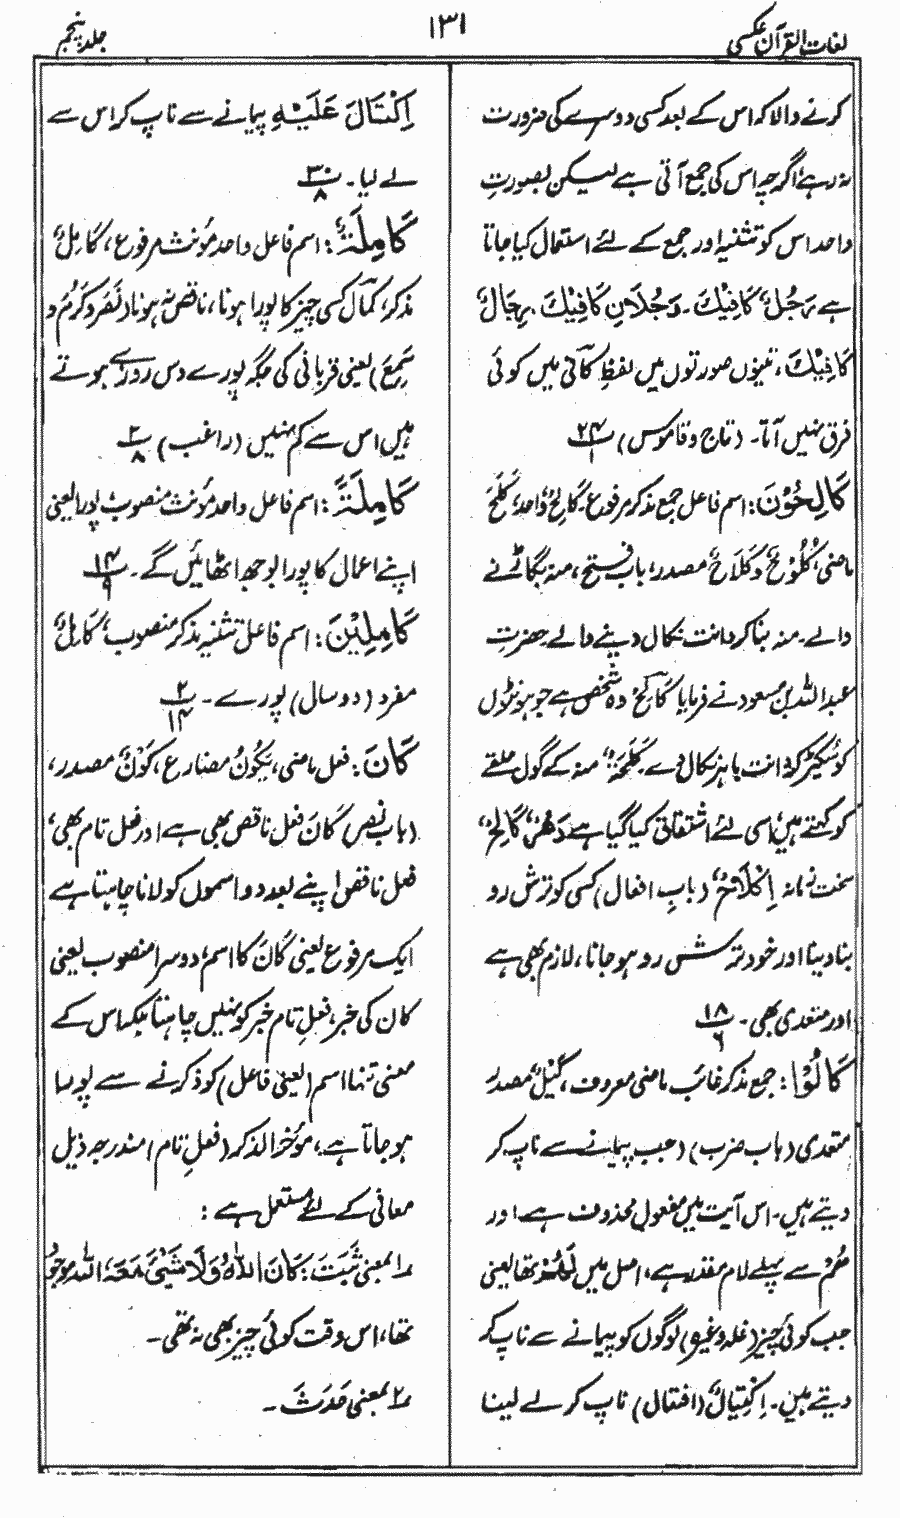 لغات القرآن عکسی
۱۳۱
جلد پنجم
کرنے والا کہ اس کے بعد کسی دوسرے کی ضرورت
نہ رہے، اگرچہ اس کی جمع آتی ہے لیکن بصورتِ
واحد اس کو تثنیہ اور جمع کے لئے استعمال کیا جاتا
ہے رَجُلٌ کَافِیْکَ۔ رَجُلَانِ کَافِیْکَ رِجَالٌ
کَافِیْکَ، تینوں صورتوں میں لفظِ کافی میں کوئی
فرق نہیں آتا۔ (تاج وقاموس) ۲۴/۱
کَالِحُوْنَ: اسم فاعل جمع مذکر مرفوع۔ کَالِحٌ واحد، کَلَحَ
ماضی، کُلُوْحٌ وَکُلَاحٌ مصدر، باب فتح، منہ بگاڑنے
والے۔ منہ بنا کر دانت نکال دینے والے حضرتِ
عبداللہ بن مسعود نے فرمایا کَالِحٌ وہ شخص ہے جو ہونٹوں
کو سُکیڑ کر دانت باہر نکال دے۔ کَلَحَۃٌ، منہ کے گول حلقے
کو کہتے ہیں، اسی لئے اشتقاق کیا گیا ہے دَھْرٌ کَالِحٌ،
سخت زمانہ اِکْلَاحٌ (بابِ افعال) کسی کو ترش رو
بنا دینا اور خود ترش رو ہو جانا، لازم بھی ہے
اور متعدی بھی۔ ۱۸/۶
کَالُوْا: جمع مذکر غائب ماضی معروف، کَیْلٌ مصدر
متعدی (باب ضرب) (جب پیمانے سے ناپ کر
دیتے ہیں۔ اس آیت میں مفعول محذوف ہے اور
ھُمْ سے پہلے لام مقدر ہے، اصل میں لَھُمْ تھا یعنی
جب کوئی چیز (غلہ وغیرہ) لوگوں کو پیمانے سے ناپ کر
دیتے ہیں۔ اِکْتِیَالٌ (افتعال) ناپ کر لے لینا
اِکْتَالَ عَلَیْہِ پیمانے سے ناپ کر اس سے
لے لیا۔ ۳۰/۸
کَامِلَۃٌ: اسم فاعل واحد مؤنث مرفوع، کَامِلٌ
مذکر، کمال کسی چیز کا پورا ہونا، ناقص نہ ہونا (نَصَرَ وکَرُمَ و
سَمِعَ) یعنی قربانی کی جگہ پورے دس روزے ہوتے
ہیں اس سے کم نہیں (راغب) ۲/۸
کَامِلَۃً: اسم فاعل واحد مؤنث منصوب، پورا یعنی
اپنے اعمال کا پورا بوجھ اٹھائیں گے۔ ۱۴/۹
کَامِلَیْنِ: اسم فاعل تثنیہ مذکر منصوب، کَامِلٌ
مفرد (دو سال) پورے۔ ۲/۱۴
کَانَ: فعل ماضی، یَکُوْنُ مضارع، کَوْنٌ مصدر،
(باب نصر) کَانَ فعل ناقص بھی ہے اور فعل تام بھی،
فعل ناقص اپنے بعد دو اسموں کو لانا چاہتا ہے
ایک مرفوع یعنی کَانَ کا اسم، دوسرا منصوب یعنی
کان کی خبر، فعلِ تام خبر کو نہیں چاہتا بلکہ اس کے
معنی تنہا اسم (یعنی فاعل) کو ذکر کرنے سے پورا
ہو جاتا ہے، مؤخر الذکر (فعلِ تام) مندرجہ ذیل
معانی کے لئے مستعمل ہے:
۱۔ بمعنی ثَبَتَ: کَانَ اللہُ وَلَا شَیْئَ مَعَہٗ، اللہ موجود
تھا، اس وقت کوئی چیز بھی نہ تھی۔
۲۔ بمعنی حَدَثَ۔